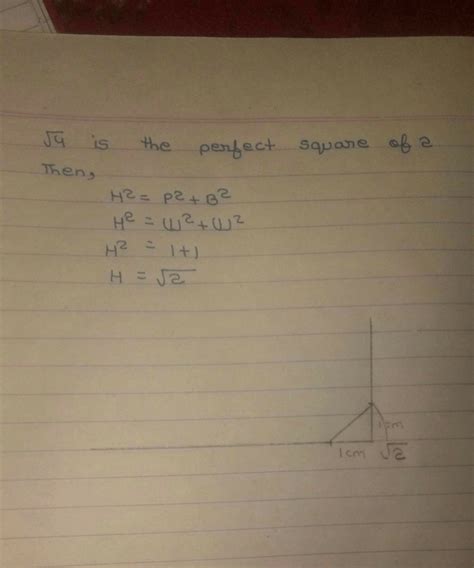 √4 is the perfect square of 2
Then,
H² = P² + B²
H² = (1)² + (1)²
H² = 1+1
H = √2
1cm
1cm √2